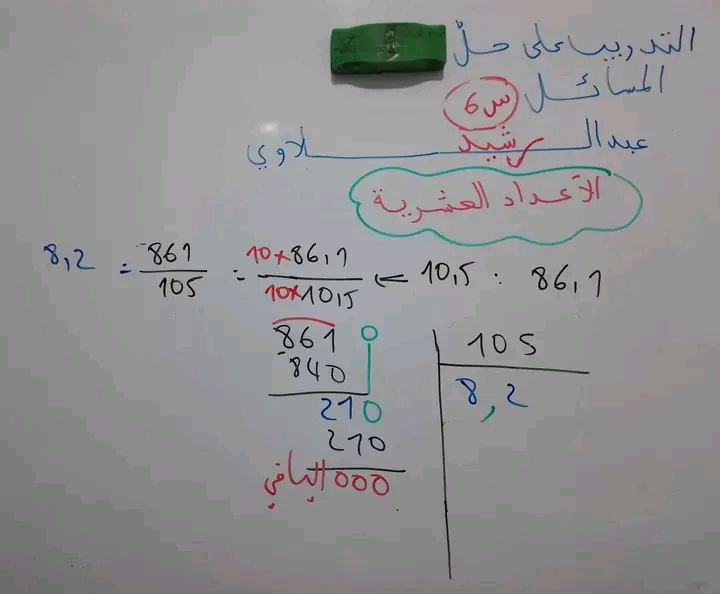 التدريب على حلّ
المسائل س6
عبد الرشيد لاوي
الأعداد العشرية
8,2 = 861/105 = 10×86,1/10×10,5 ⇐ 10,5 : 86,1
861 0 | 105
840 | 8,2
210
210
000 الباقي